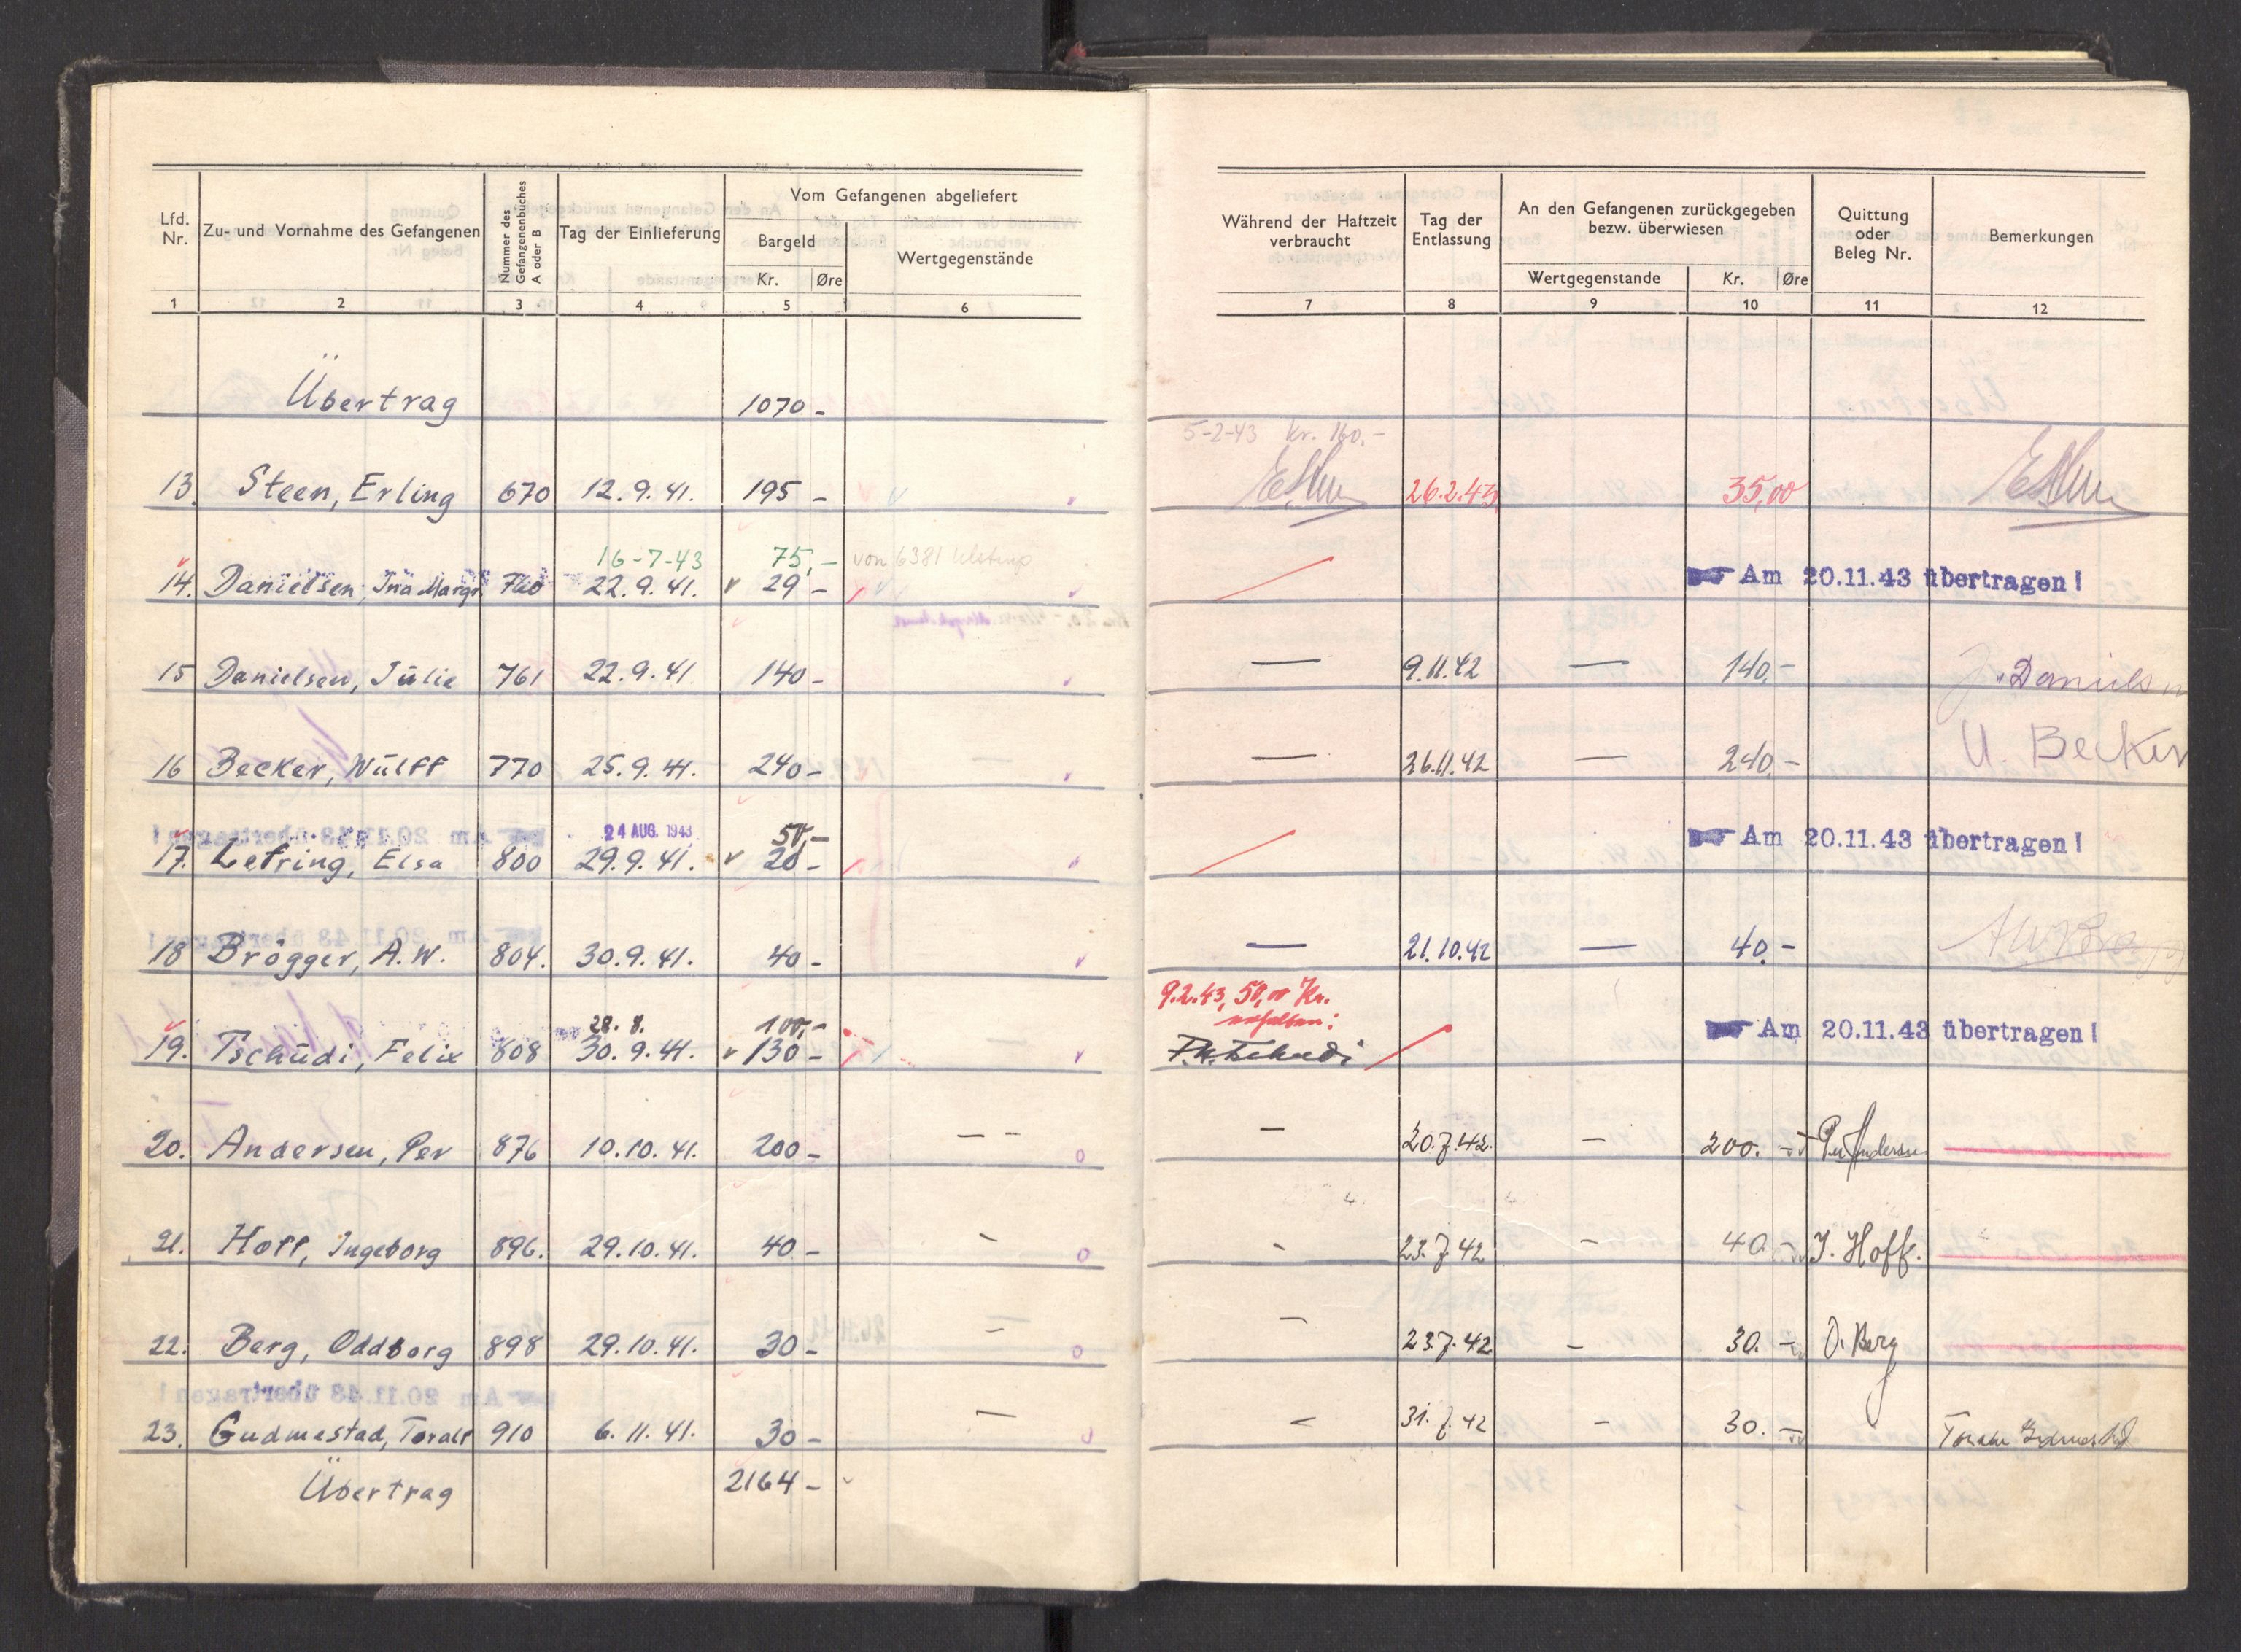 Lfd. Nr. Zu- und Vorname des Gefangenen Nummer des Gefangenenbuches A oder B Tag der Einlieferung Vom Gefangenen abgeliefert
Bargeld Wertgegenstände
Kr. Øre
1 2 3 4 5 6
Übertrag 1070 -
13. Steen, Erling 670 12.9.41. 195 -
16-7-43 75,- von 6381
14. Danielsen, Ina Margr. 760 22.9.41. 29 -
15 Danielsen, Julie 761 22.9.41 140 -
16 Becker, Wulff 770 25.9.41. 240 -
24 AUG. 1943 50,-
17. Lefring, Elsa 800 29.9.41. 20 -
18 Brögger, A.W. 804. 30.9.41. 40 -
28.8. 100,-
19. Tschudi, Felix 808 30.9.41. 130 -
20. Andersen, Per 876 10.10.41. 200 - - -
21. Hoff, Ingeborg 896. 29.10.41. 40 - -
22. Berg, Oddborg 898 29.10.41. 30 - -
23. Gudmestad, Toralf 910 6.11.41. 30 - -
Übertrag 2164 -
Während der Haftzeit verbraucht Tag der Entlassung An den Gefangenen zurückgegeben bezw. überwiesen Quittung oder Beleg Nr. Bemerkungen
Wertgegenstande Kr. Øre
7 8 9 10 11 12
5-2-43 Kr. 160.-
26.2.43 35,00
Am 20.11.43 übertragen!
— 9.11.42 — 140.- J. Danielsen
— 26.11.42 — 240.- U. Becker
Am 20.11.43 übertragen!
— 21.10.42 — 40.-
9.2.43, 50,00 Kr.
erhalten:
Am 20.11.43 übertragen!
F.H. Tschudi
- 20.7.42. - 200. - Per Andersen
- 23.7.42 - 40 - I. Hoff.
- 23.7.42 - 30. - O. Berg
- 31.7.42 - 30. - Toralf Gudmestad